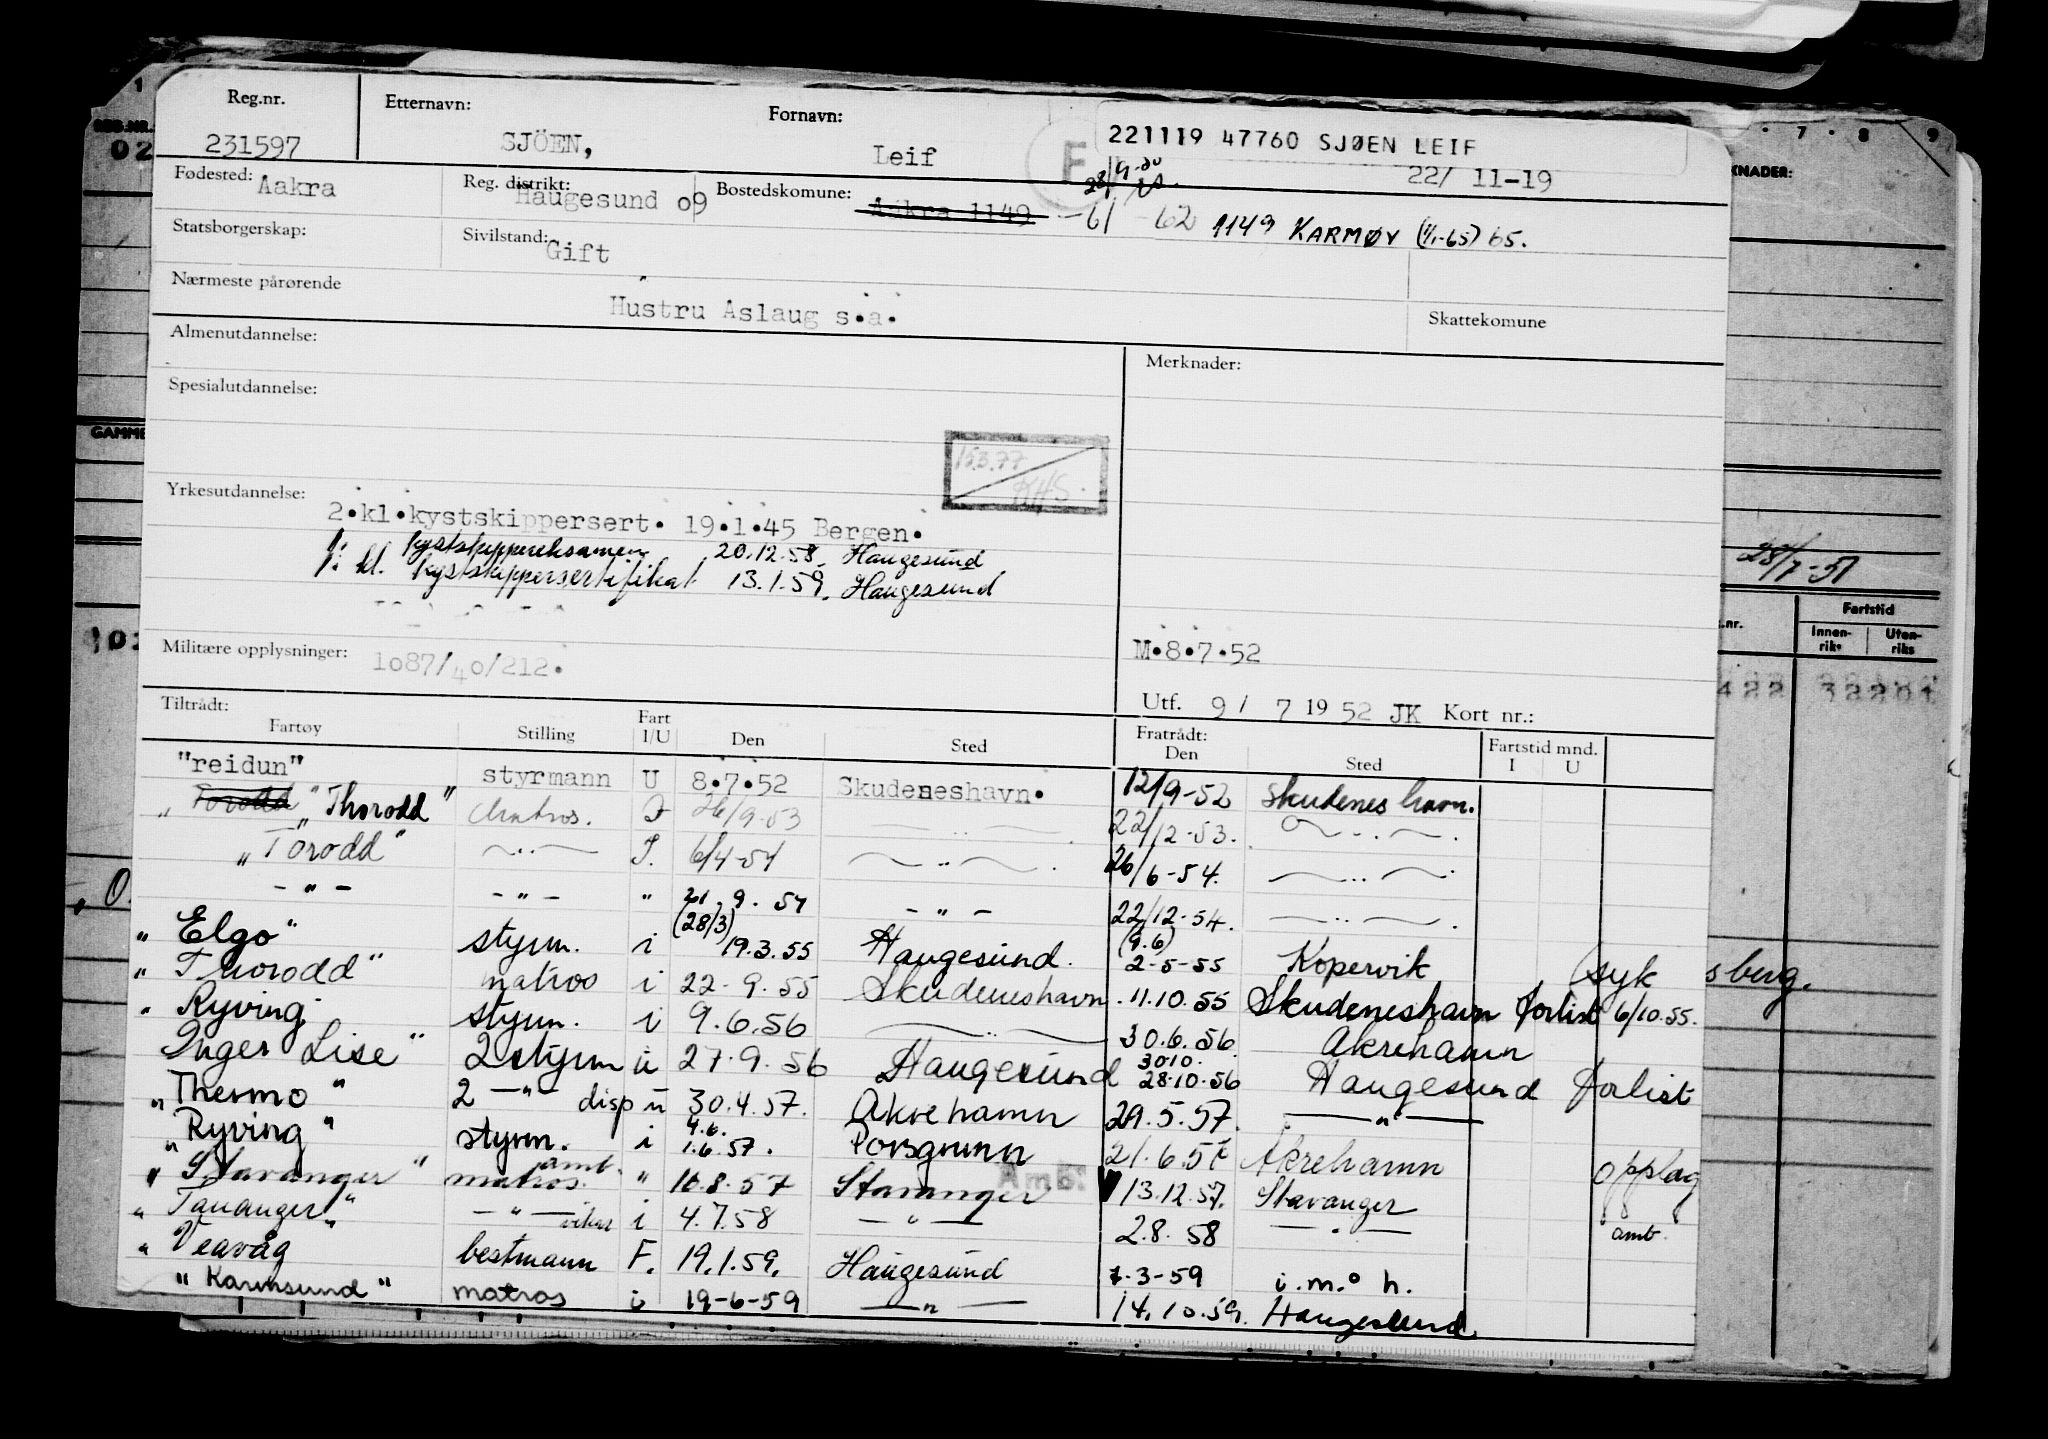 Reg.nr. Etternavn: Fornavn:
231597 SJÖEN, Leif
221119 47760 SJØEN LEIF
22/ 11-19
Fødested: Aakra Reg. distrikt: Haugesund o9 Bostedskomune: Aakra 1149 -61 -62 1149 KARMØY (1/1-65) 65.
Statsborgerskap: Sivilstand: Gift
Nærmeste pårørende
Hustru Aslaug s.a. Skattekomune
Almenutdannelse: Merknader:
Spesialutdannelse:
15.3.77
Yrkesutdannelse:
2.kl.kystskippersert. 19.1.45 Bergen.
1. kystskippereksamen 20.12.58. Haugesund
1. kl. kystskippersertifikat 13.1.59. Haugesund
Militære opplysninger: 1o87/40/212. M.8.7.52
Utf. 9/ 7 1952 JK Kort nr.:
Tiltrådt: Fratrådt:
Fartøy Stilling Fart I/U Den Sted Den Sted Fartstid mnd. I U
"reidun" styrmann U 8.7.52 Skudeneshavn. 12/9-52 Skudeneshavn.
" Torodd "Thorodd" Matros. I 26/9-53 — " — 22/12-53. — " — .
"Torodd" — " — I. 6/4-54 — " — . 26/6-54. — " — .
- " - - " - " 21.9.54 - " - 22/12-54. — " — .
"Elgo" styrm. i (28/3) 19.3.55 Haugesund. (9.6) 2-5-55 Kopervik syk
"Thorodd" matros i 22-9.55 Skudeneshavn 11.10.55 Skudeneshavn forlist 6/10.55.
" Ryving styrm. i 9.6.56 — " — 30.6.56. Åkrehamn
Inger Lise" 2 styrm u 27.9.56 Haugesund 30.10. 28.10.56 Haugesund forlist
"Thermo" 2 — " — disp u 30.4.57. Åkrehamn 29.5.57. — " —
"Ryving" styrm. i 4.6. 1.6.57. Porsgrunn 21.6.57 Åkrehamn opplag
"Stavanger" matros. amb. " 10.8.57 Stavanger Amb: 13.12.57. Stavanger
"Tananger" — " — vikar i 4.7.58 — " — 2.8.58 — " — amb.
" Veavåg" bestmann F. 19.1.59. Haugesund 7.3-59 i.m.o h.
"Karmsund" matros i 19-6-59 — " — 14.10.59. Haugesund
1
02
GAMME
7 . 8 . 9
KNADER:
28/7-51
.nr. Fartstid
Innen-riks Uten-riks
422 32201
sberg.